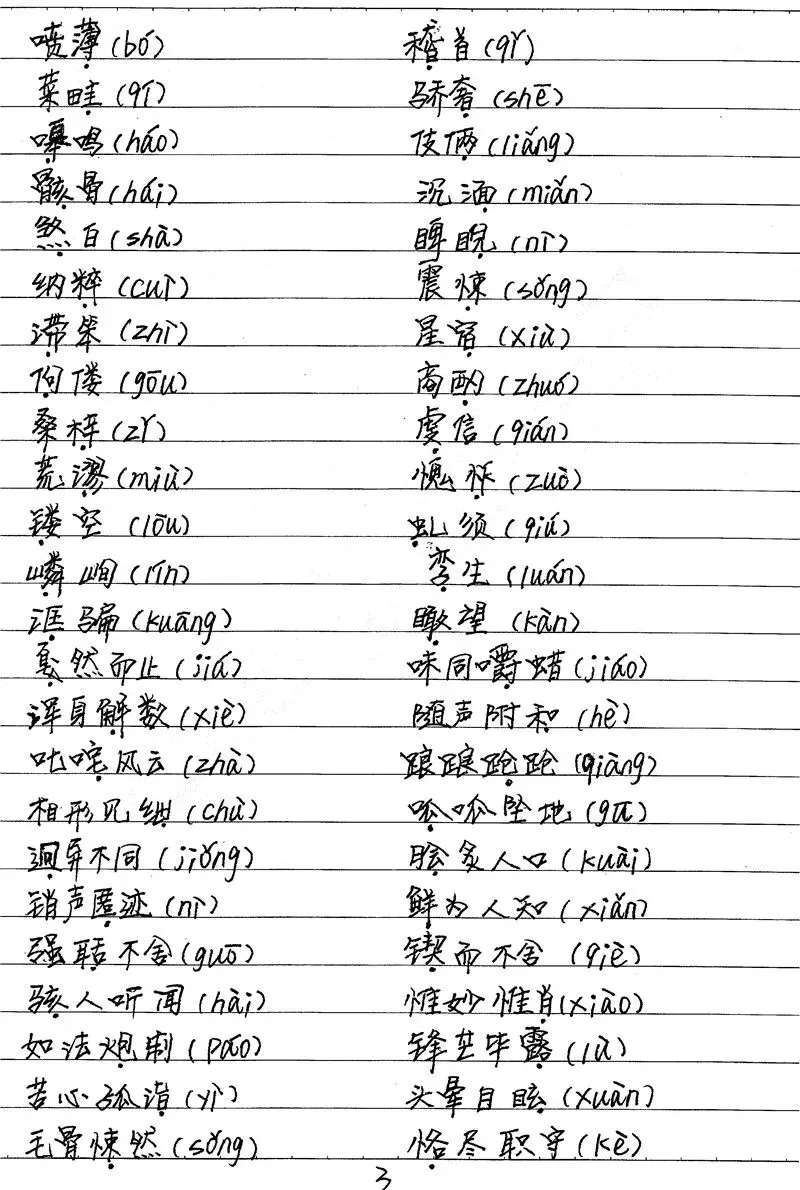 喷薄(bó) 稽首(qǐ)
菜畦(qí) 骄奢(shē)
嗥鸣(háo) 伎俩(liǎng)
骸骨(hái) 沉湎(miǎn)
煞白(shà) 睥睨(nì)
纳粹(cuì) 震悚(sǒng)
滞笨(zhì) 星宿(xiù)
佝偻(gōu) 商酌(zhuó)
桑梓(zǐ) 虔信(qián)
荒谬(miù) 愧怍(zuò)
镂空(lōu) 虬须(qiú)
嶙峋(lín) 孪生(luán)
诓骗(kuāng) 瞰望(kàn)
戛然而止(jiá) 味同嚼蜡(jiáo)
浑身解数(xiè) 随声附和(hè)
叱咤风云(zhà) 踉踉跄跄(qiàng)
相形见绌(chù) 呱呱坠地(gū)
迥异不同(jiǒng) 脍炙人口(kuài)
销声匿迹(nì) 鲜为人知(xiǎn)
强聒不舍(guō) 锲而不舍(qiè)
骇人听闻(hài) 惟妙惟肖(xiào)
如法炮制(páo) 锋芒毕露(lù)
苦心孤诣(yì) 头晕目眩(xuàn)
毛骨悚然(sǒng) 恪尽职守(kè)
3